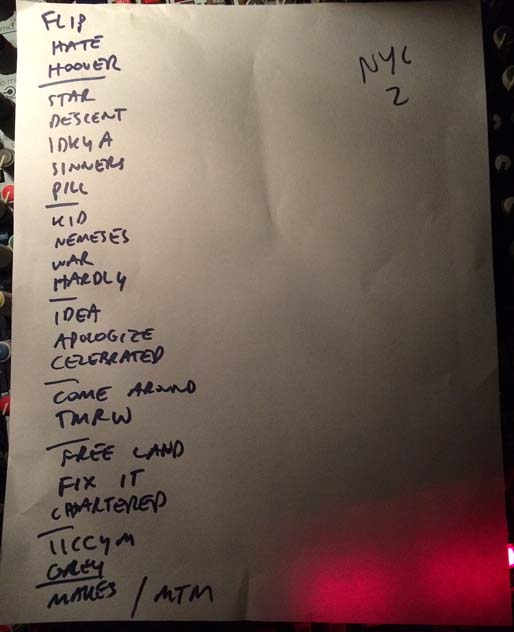 FLIP
HATE
HOOVER
NYC
2
STAR
DESCENT
IDKYA
SINNERS
PILL
KID
NEMESES
WAR
HARDLY
IDEA
APOLOGIZE
CELEBRATED
COME AROUND
TMRW
FREE LAND
FIX IT
CHARTERED
IICCYM
GREY
MAKES / MTM